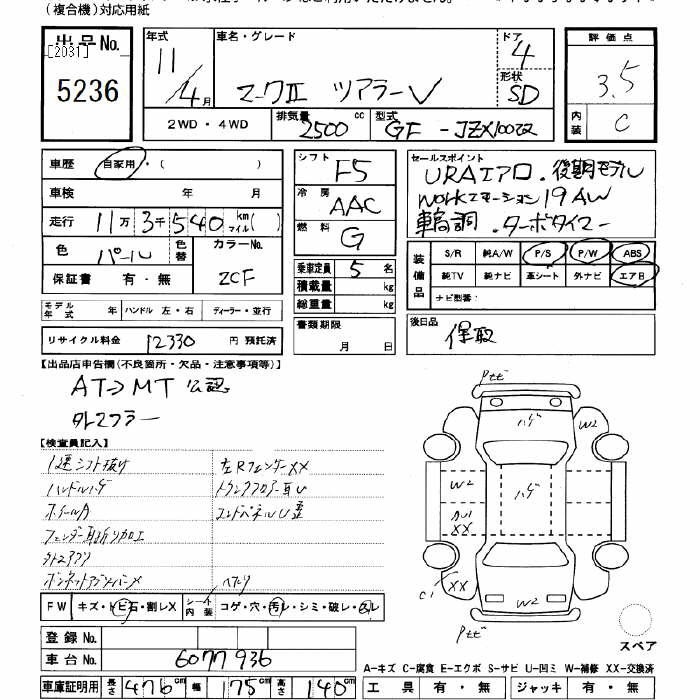 (複合機)対応用紙
出品No.
[2031]
5236
年式
11
4月
車名・グレード
マークII ツアラーV
ドア
4
形状
SD
2WD・4WD
排気量
2500
cc
型式
GF-JZX100改
評価点
3.5
内装
C
車歴 自家用・( )
車検 年 月
走行 11万3千540 km マイル( )
色 パール 色替
カラーNo.
2CF
保証書 有・無
モデル年式 年 ハンドル 左・右 ディーラー・並行
リサイクル料金 12330 円 預託済
シフト F5
冷房 AAC
燃料 G
乗車定員 5 名
積載量 kg
総重量 kg
書類期限
月 日
セールスポイント
URAエアロ.後期モデル
WORKエモーション19AW
車高調.ターボタイマー
装備品
S/R 純A/W P/S P/W ABS
純TV 純ナビ 革シート 外ナビ エアB
ナビ型番:
後日品
保取
【出品店申告欄(不良箇所・欠品・注意事項等)】
AT→MT 公認
外マフラー
【検査員記入】
1速シフト抜け
左RフェンダーXX
ハンドルハゲ
トランクフロアー凹U
ホイールA
エンドパネルU歪
フェンダー耳折り加工
外マフラー
ヘタリ
FW キズ・トビ石・割レX
シート内装 コゲ・穴・汚レ・シミ・破レ・スレ
登録No.
車台No. 6077936
車庫証明用 長さ 476cm 幅 175cm 高さ 140cm
Pトビ
ハゲ
W2
W2
ハゲ
XX
C1
XX
W2
Pトビ
スペア
A-キズ C-腐食 E-エクボ S-サビ U-凹ミ W-補修 XX-交換済
工具 有・無 ジャッキ 有・無